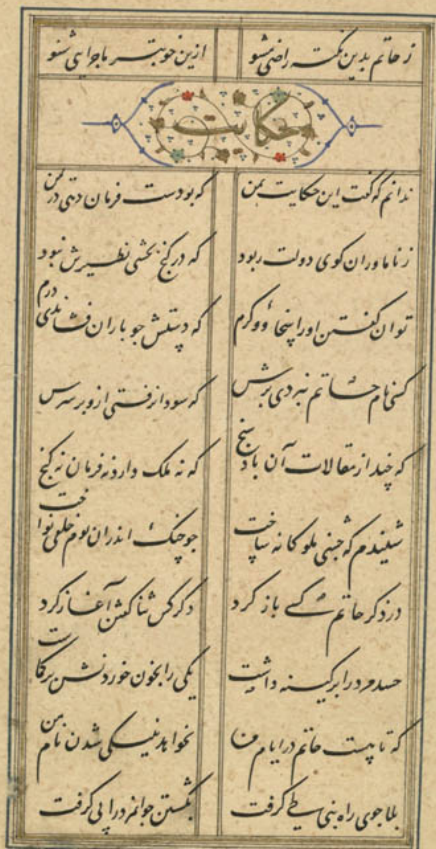 ز حاتم بدین نکته راضی مشو ازین خوبتر ماجرای شنو
حکایت
ندانم که گفت این حکایت بمن که بودست فرمان دهی در یمن
ز نام آوران کوی دولت ربود که در گنج بخشی نظیرش نبود
توان گفتن او را سخا و کرم که دستش چو باران فشاندی درم
کسی نام حاتم نبردی برش که سودا نرفتی ازو بر سرش
که چند از مقالات آن باد سنج که نه ملک دارد نه فرمان نه گنج
شنیدم که جشنی ملوکانه ساخت چو چنگ اندران بزم خلقی نواخت
در ذکر حاتم کسی باز کرد دگر کس ثنا گفتن آغاز کرد
حسد مرد را بر کینه داشت یکی را بخون خوردنش بر کاشت
که تا هست حاتم در ایام من نخواهد بنیکی شدن نام من
بلا جوی راه بنی طی گرفت بکشتن جوانمرد را پی گرفت